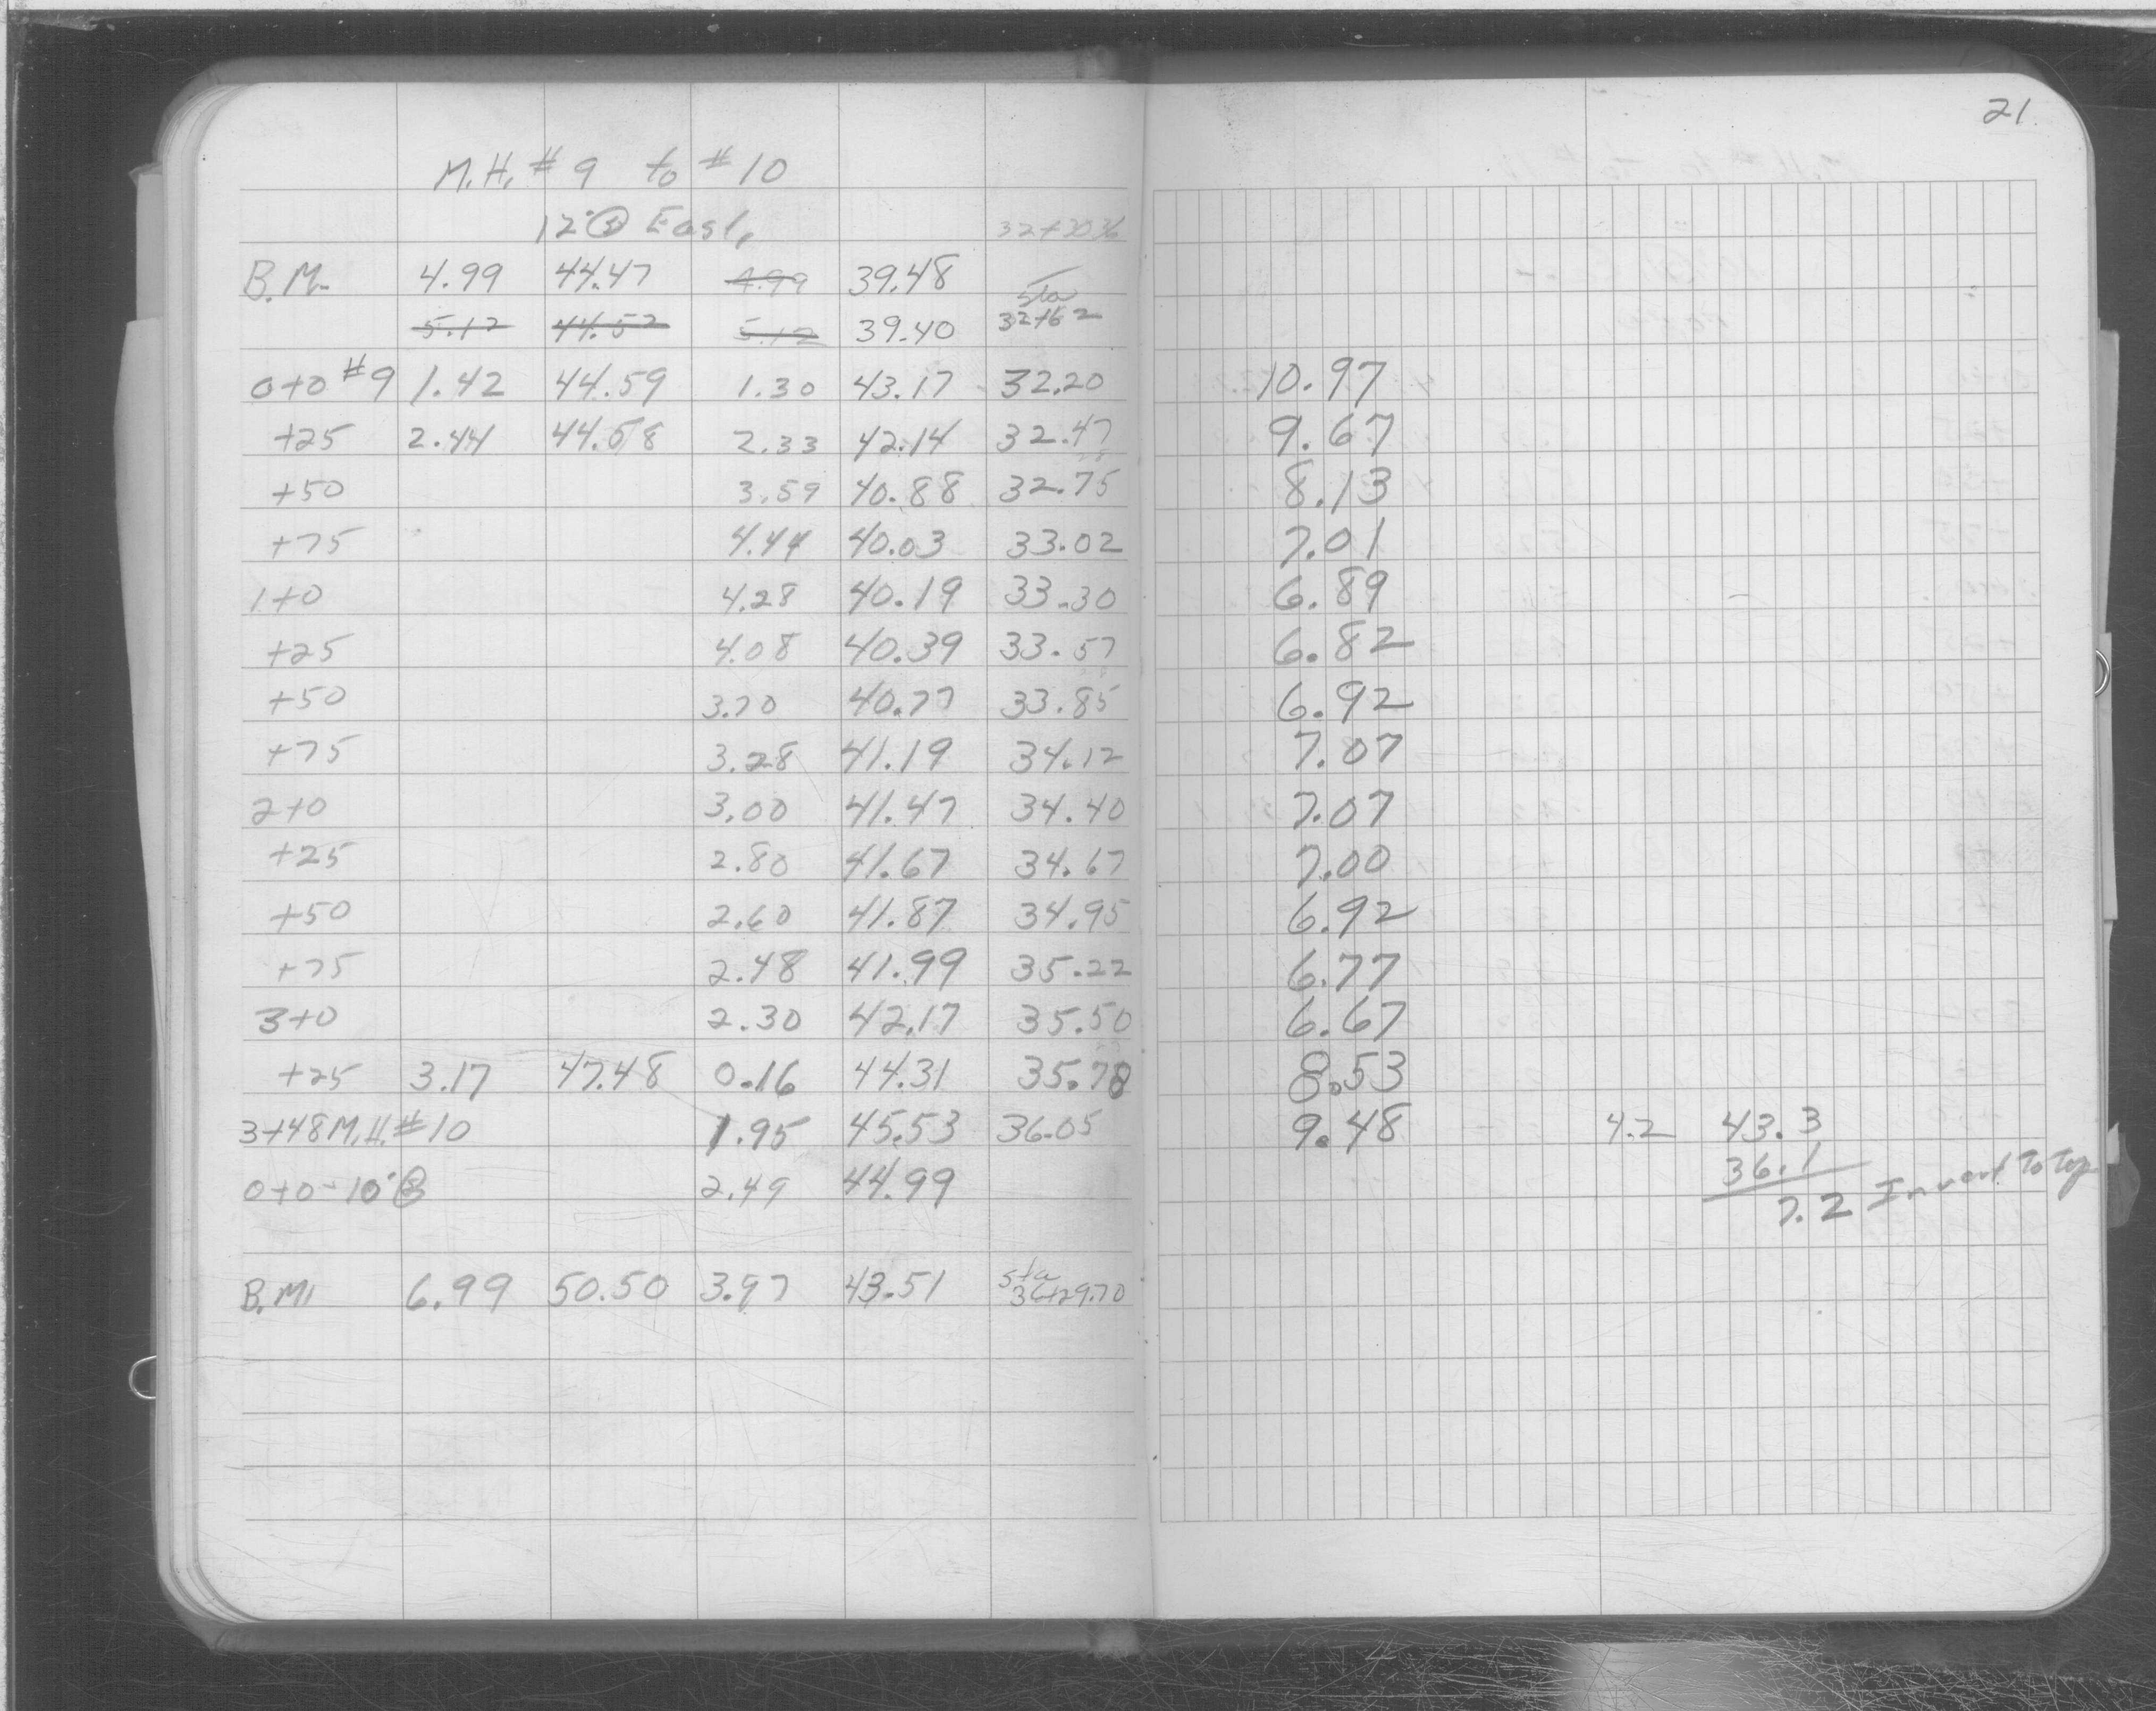 21
M.H. #9 to #10
12" ③ East, 32+20 36
B.M. 4.99 44.47 4.99 39.48 sta
5.12 44.52 5.12 39.40 32+62
0+0 #9 1.42 44.59 1.30 43.17 32.20 10.97
+25 2.44 44.58 2.33 42.14 32.47 9.67
+50 3.59 40.88 32.75 8.13
+75 4.44 40.03 33.02 7.01
1+0 4.28 40.19 33.30 6.89
+25 4.08 40.39 33.57 6.82
+50 3.70 40.77 33.85 6.92
+75 3.28 41.19 34.12 7.07
2+0 3.00 41.47 34.40 7.07
+25 2.80 41.67 34.67 7.00
+50 2.60 41.87 34.95 6.92
+75 2.48 41.99 35.22 6.77
3+0 2.30 42.17 35.50 6.67
+25 3.17 47.48 0.16 44.31 35.78 8.53
3+48 M.H. #10 1.95 45.53 36.05 9.48 4.2 43.3
36.1
0+0-10" 2.49 44.99 7.2 Invert To Top
B.M. 6.99 50.50 3.97 43.51 sta 36+29.70